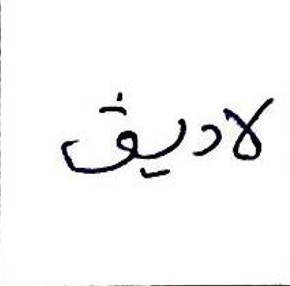 لاديڨ